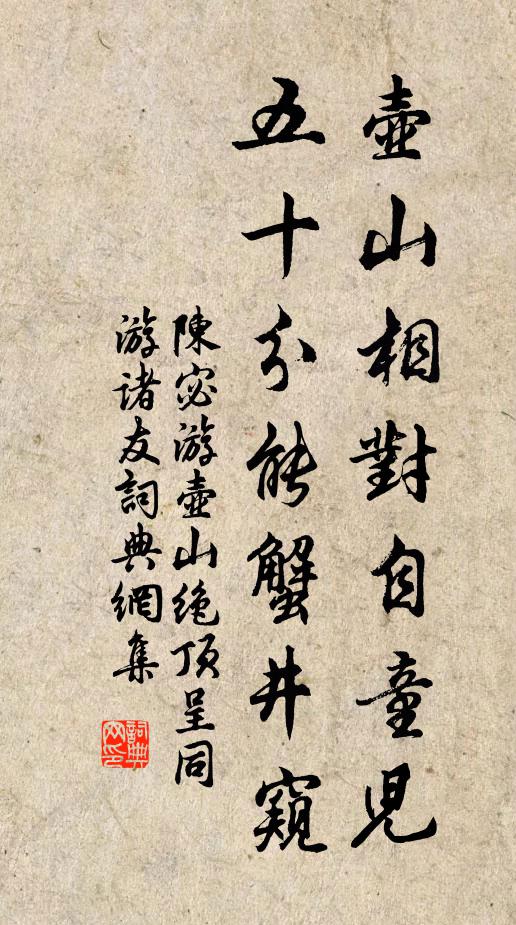 壺山相對自童兒
五十分能蟹井窺
陳宓游壺山絶頂呈同
游诸友詞典網集
詞典网印